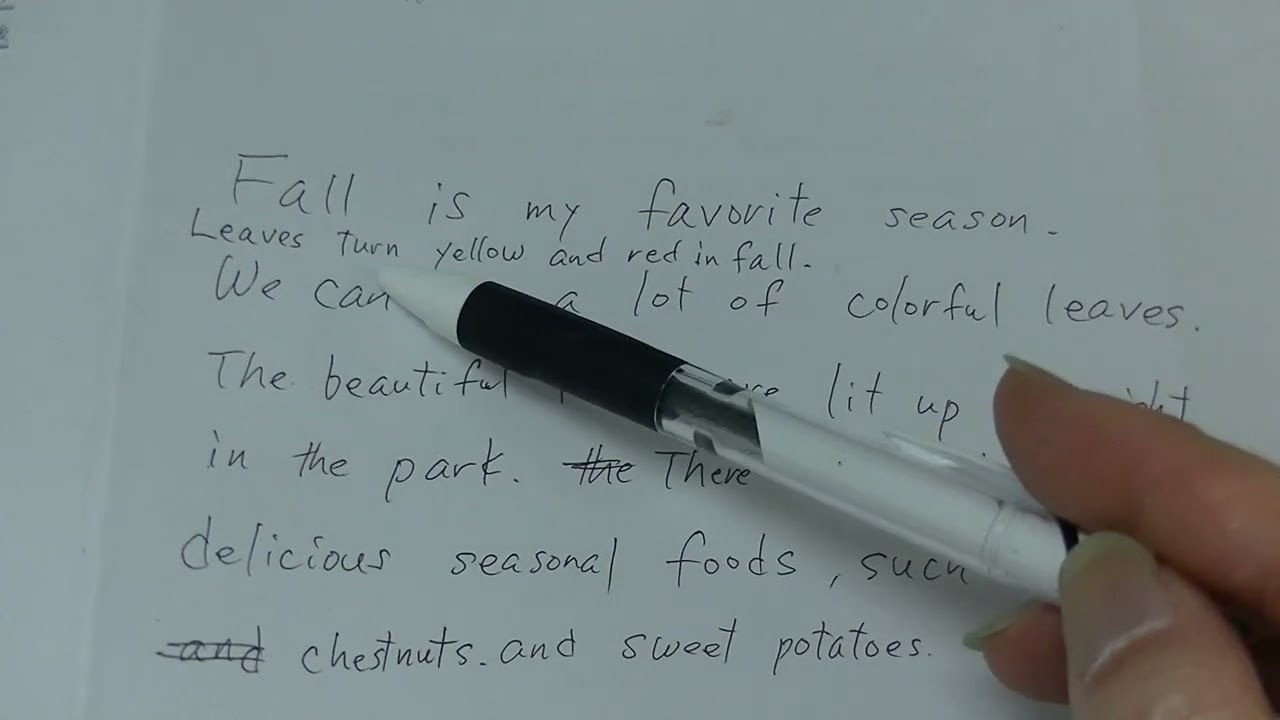 Fall is my favorite season.
Leaves turn yellow and red in fall.
We can a lot of colorful leaves.
The beautiful lit up
in the park. the There
delicious seasonal foods, such
and chestnuts. and sweet potatoes.